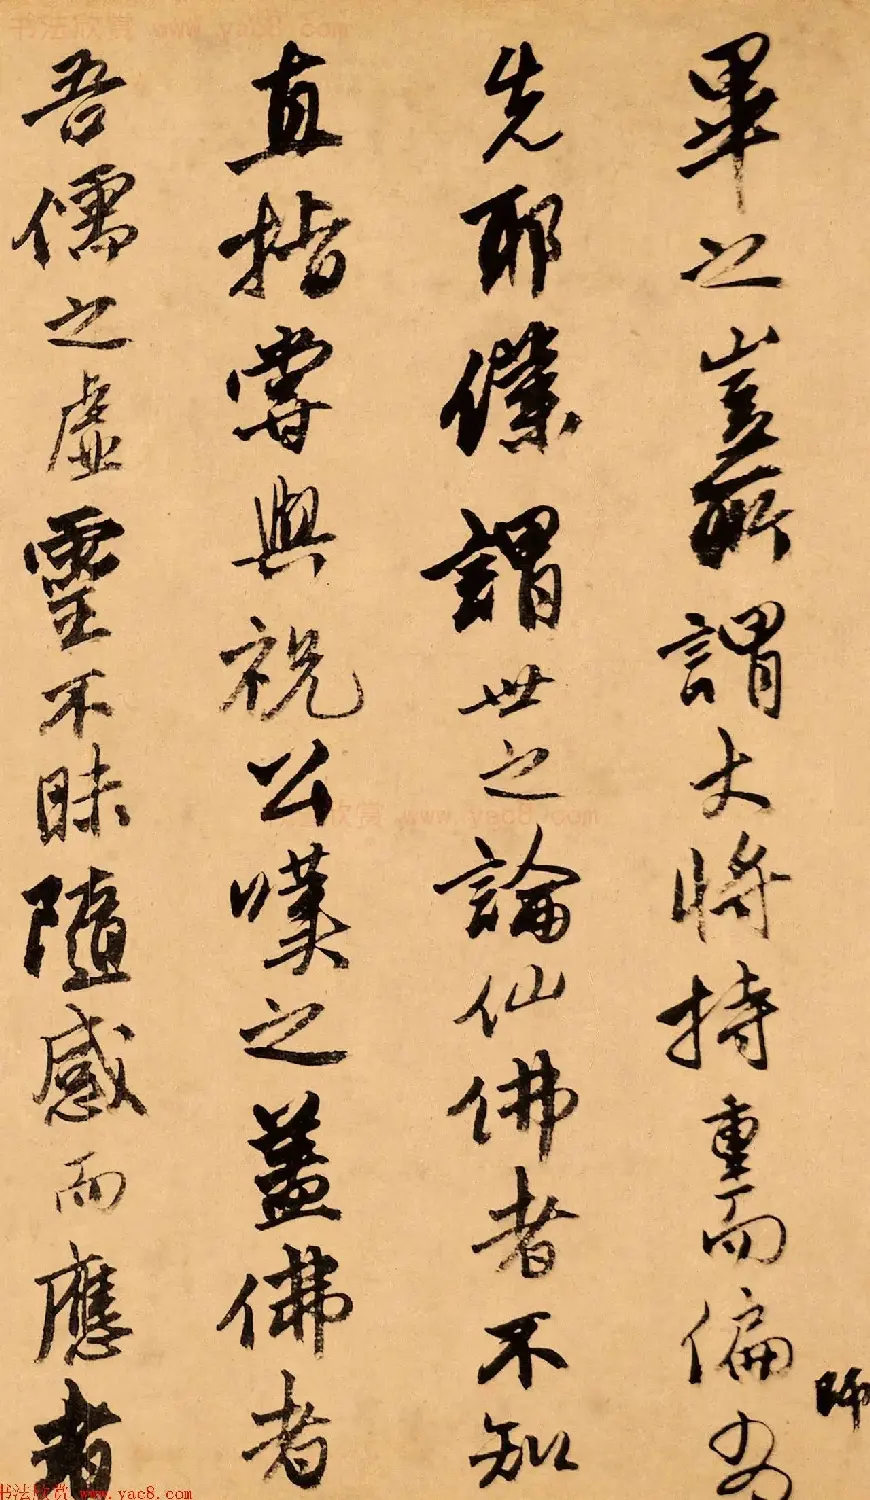 书法欣赏 www.yac8.com
畢之豈所謂大將持重而偏師為
先耶僕謂世之論仙佛者不知
直指嘗與祝公嘆之蓋佛者
吾儒之虛靈不昧隨感而應者
书法欣赏 www.yac8.com
书法欣赏 www.yac8.com